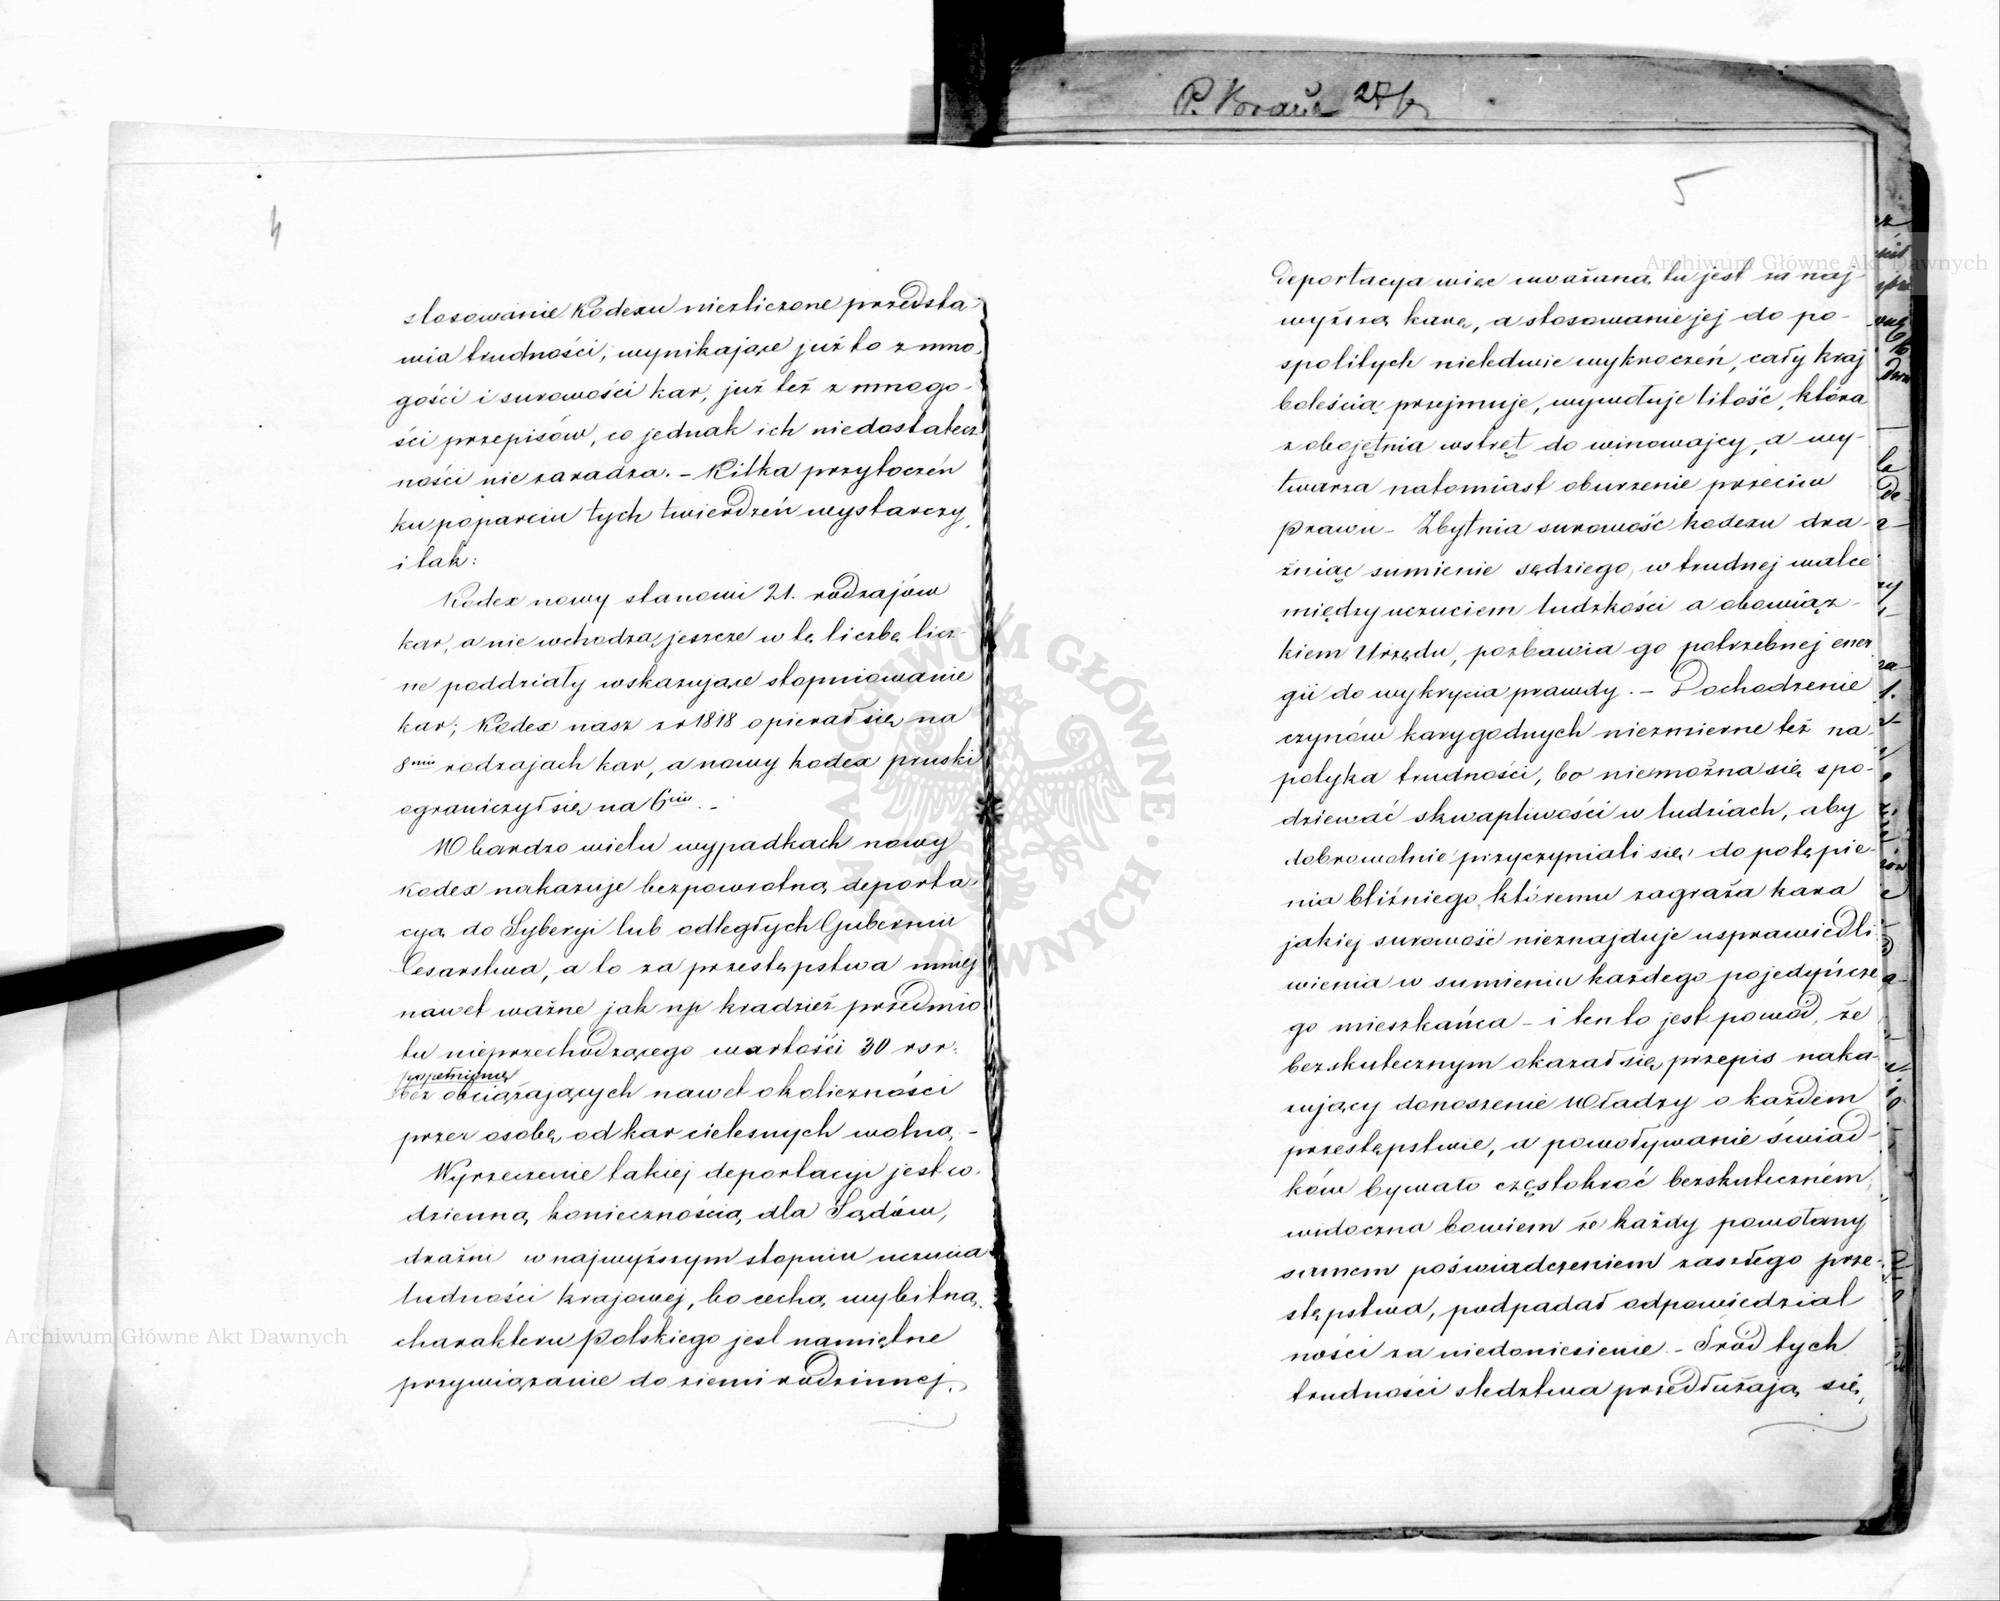 4
stosowanie Kodexu niezliczone przedsta
wia trudności, wynikające już to z mno-
gości i surowości kar, już też z mnogo-
ści przepisów, co jednak ich niedostatecz
ności nie zaradza. – Kilka przytoczeń
ku poparciu tych twierdzeń wystarczy,
i tak:
Kodex nowy stanowi 21. rodzajów
kar, a nie wchodzą jeszcze w tę liczbę licz-
ne poddziały wskazujące stopniowanie
kar; Kodex nasz z r 1818 opierał się na
8miu rodzajach kar, a nowy kodex pruski
ograniczył się na 6ciu. –
W bardzo wielu wypadkach nowy
Kodex nakazuje bezpowrotną deporta-
cyą do Syberyi lub odległych Gubernii
Cesarstwa, a to za przestępstwa mniej
nawet ważne jak np kradzież przedmio
tu nieprzechodzącego wartości 30 rsr:
popełnioną
bez obciążających nawet okoliczności
przez osobę od kar cielesnych wolną. –
Wyrzeczenie takiej deportacyi jest co-
dzienną koniecznością dla Sądów,
drażni w najwyższym stopniu uczucia
ludności krajowej, bo cechą wybitną
charakteru Polskiego jest namiętne
przywiązanie do ziemi rodzinnej.
5
Deportacya więc uważana tu jest za naj-
wyższą karę, a stosowanie jej do po-
spolitych nieledwie wykroczeń, cały kraj
boleścią przejmuje, wywołuje litość, która
zobojętnia wstręt do winowajcy, a wy-
twarza natomiast oburzenie przeciw
prawu – Zbytnia surowość kodexu dra-
żniąc sumienie sędziego, w trudnej walce
między uczuciem ludzkości a obowiąz-
kiem Urzędu, pozbawia go potrzebnej ener
gii do wykrycia prawdy. – Dochodzenie
czynów karygodnych niezmierne też na-
potyka trudności, bo niemożna się spo-
dziewać skwapliwości w ludziach, aby
dobrowolnie przyczyniali się do potępie-
nia bliźniego, któremu zagraża kara
jakiej surowość nieznajduje usprawiedli
wienia w sumieniu każdego pojedyńcze
go mieszkańca – i ten to jest powód, że
bezskutecznym okazał się przepis naka-
zujący donoszenie Władzy o każdem
przestępstwie, a powoływanie świad-
ków bywało częstokroć bezskuteczném,
widoczna bowiem że każdy powołany
samem poświadczeniem zaszłego prze-
stępstwa, podpadał odpowiedzial
ności za niedoniesienie. – Śród tych
trudności śledztwa przedłużają się,
Archiwum Główne Akt Dawnych
Archiwum Główne Akt Dawnych
ARCHIWUM GŁÓWNE AKT DAWNYCH